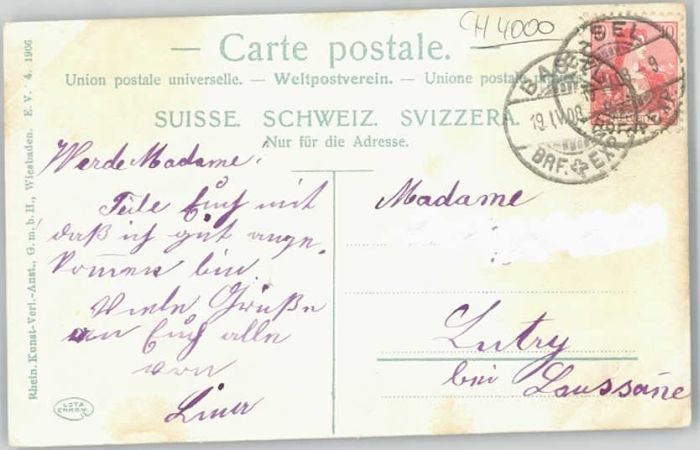 CH 4000
Carte postale.
Union postale universelle. — Weltpostverein. — Unione postale
SUISSE. SCHWEIZ. SVIZZERA.
Nur für die Adresse.
BASEL
19.IV.08
BRF. EXP.
Werde Madame!
Teile Euch mit
daß ich gut ange-
kommen bin
Viele Grüße
an Euch alle
von
Madame
Lutry
bei Laussane
Rhein. Kunst-Verl.-Anst., G. m. b. H., Wiesbaden. E. V. 4. 1906